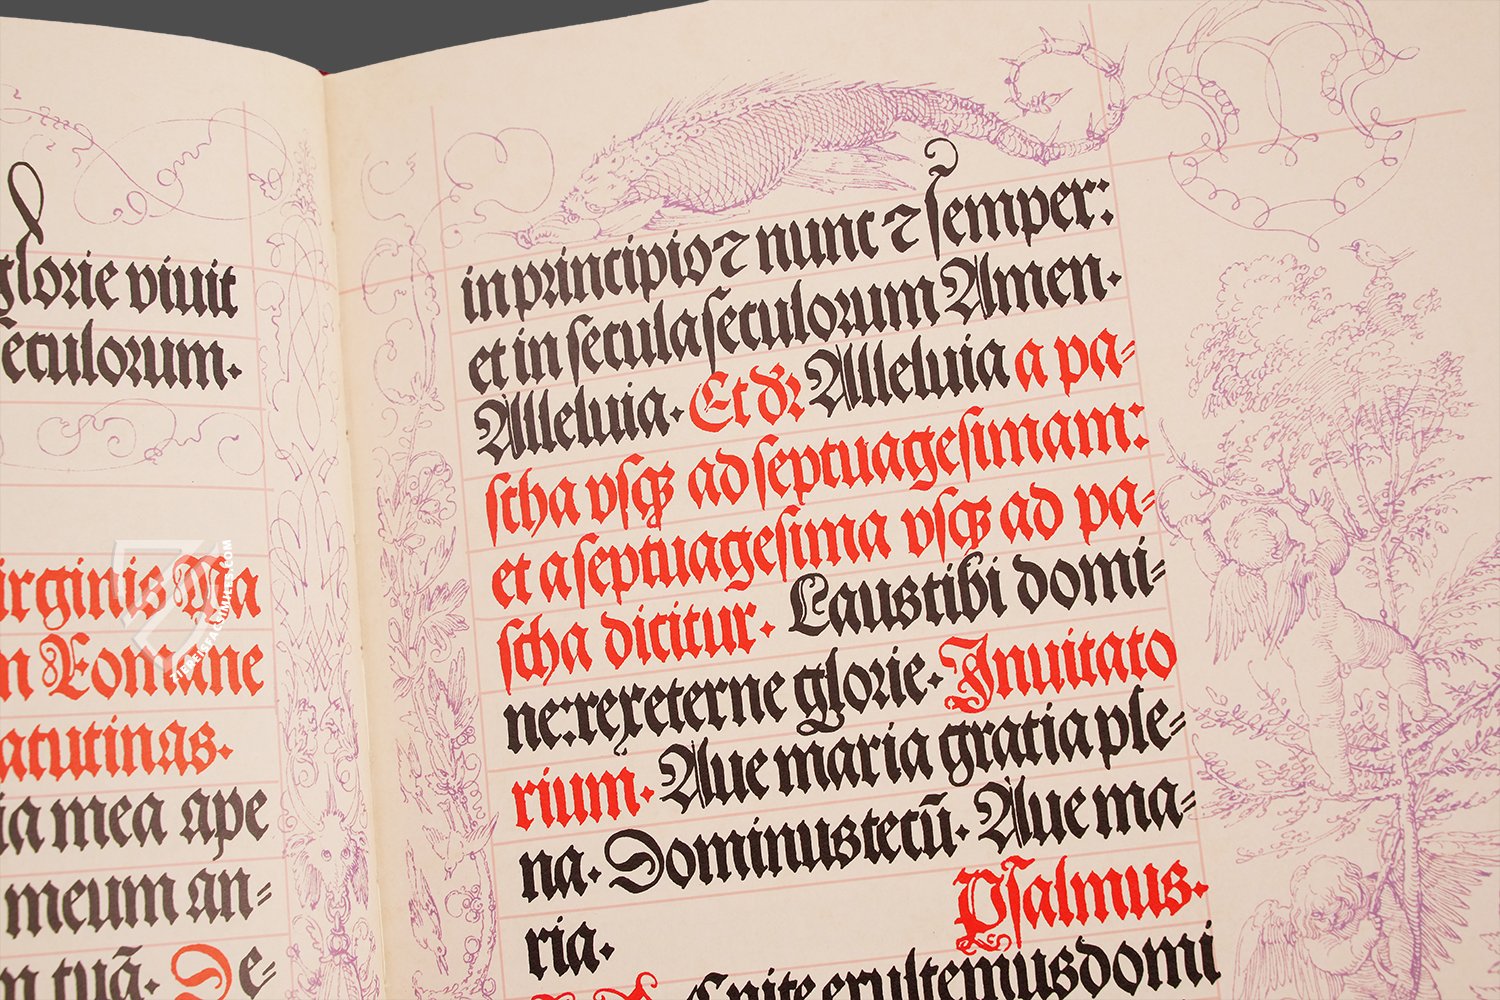 glorie viuit
seculorum.
irginis Ma
m Romane
atutinas.
ia mea ape
meum an⸗
m tuā. De⸗
in principio ⁊ nunc ⁊ semper:
et in secula seculorum Amen.
Alleluia. Et dr̄ Alleluia a pa⸗
scha vsqꝫ ad septuagesimam:
et a septuagesima vsqꝫ ad pa⸗
scha dicitur. Laus tibi domi⸗
ne: rex eterne glorie. Inuitato
rium. Aue maria gratia ple⸗
na. Dominus tecū. Aue ma⸗
ria.
Psalmus.
enite exultemus domi